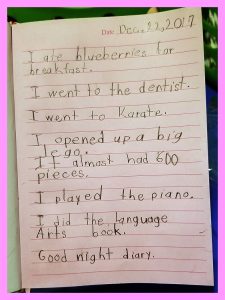 Date Dec. 22, 2017
I ate blueberries for
breakfast.
I went to the dentist.
I went to Karate.
I opened up a big
lego.
It almost had 600
pieces.
I played the piano.
I did the Language
Arts book.
Good night diary.